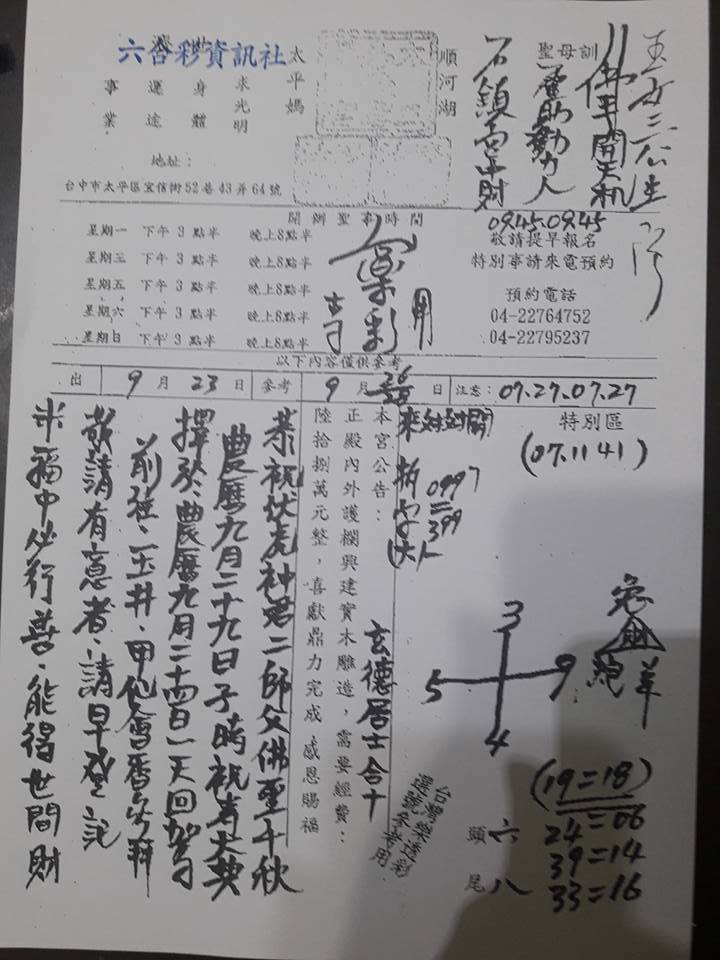 六合彩資訊社
太平媽
求光明
身體
運途
事業
地址：
台中市太平區宜信街52巷43弄64號
順河湖
聖母訓
佛手開天机
石頭也中財
開辦聖事時間
星期一 下午3點半 晚上8點半
星期三 下午3點半 晚上8點半
星期五 下午3點半 晚上8點半
星期六 下午3點半 晚上8點半
星期日 下午3點半 晚上8點半
0945.0945
敬請提早報名
特別事請來電預約
預約電話
04-22764752
04-22795237
以下內容僅供參考
出 9月23日 參考 9月26/28日 注意：07.27.07.27
特別區
(07.11 41)
本宮公告：
正殿內外護欄興建實木雕造，需要經費：
陸拾捌萬元整，喜獻鼎力完成，感恩賜福
玄德居士合十
恭祝伏虎神君二師父佛聖千秋
農曆九月二十九日子時祝壽大典
擇於農曆九月二十四日一天回駕
敬請有意者、請早登記
求福中必行善、能得世間財
0997
=
399
3
5 9
4
兔
財
羊
(19=18)
24=06
39=14
33=16
頭 六
尾 八
台灣樂透彩
選號參考用